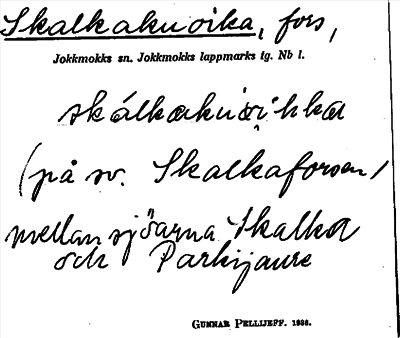 Skalkakuoika, fors,
Jokkmokks sn. Jokkmokks lappmarks tg. Nb l.
(på sv. Skalkaforsen)
mellan sjöarna Skalka
och Parkijaure
GUNNAR PELLIJEFF. 1936.